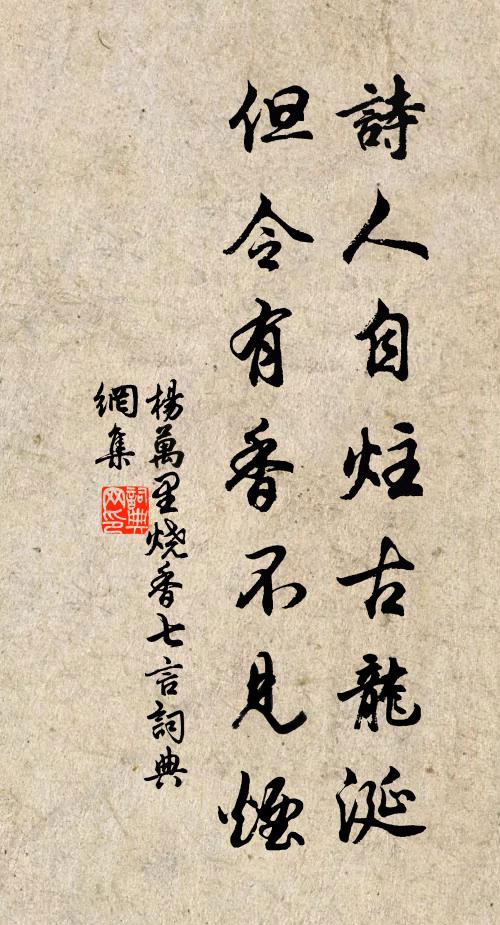 詩人自炷古龍涎
但令有香不見煙
楊萬里燒香七言詞典
網集
詞典
网印